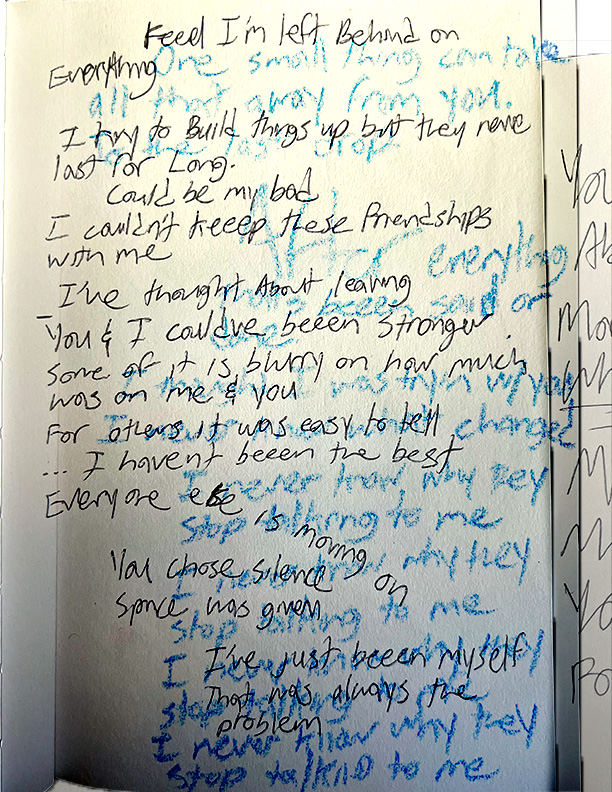 Feel I'm left Behind on
Everything
I try to Build things up but they never
last for Long.
Could be my bad
I couldn't keeep these friendships
with me
I've thought About leaving
You & I could've beeen stronger.
some of it is blurry on how much
was on me & you
For others it was easy to tell
... I haven't beeen the best
Everyone else is moving on
You chose silence
space was given
I've just beeen myself
That was always the
problem
One small thing can take
all that away from you.
last drop
After everything
beeen said or
I was w/ you
changed
I never know why they
stop talking to me
I never know why they
stop talking to me
I never know why they
stop talking to me
I never know why they
stop talking to me